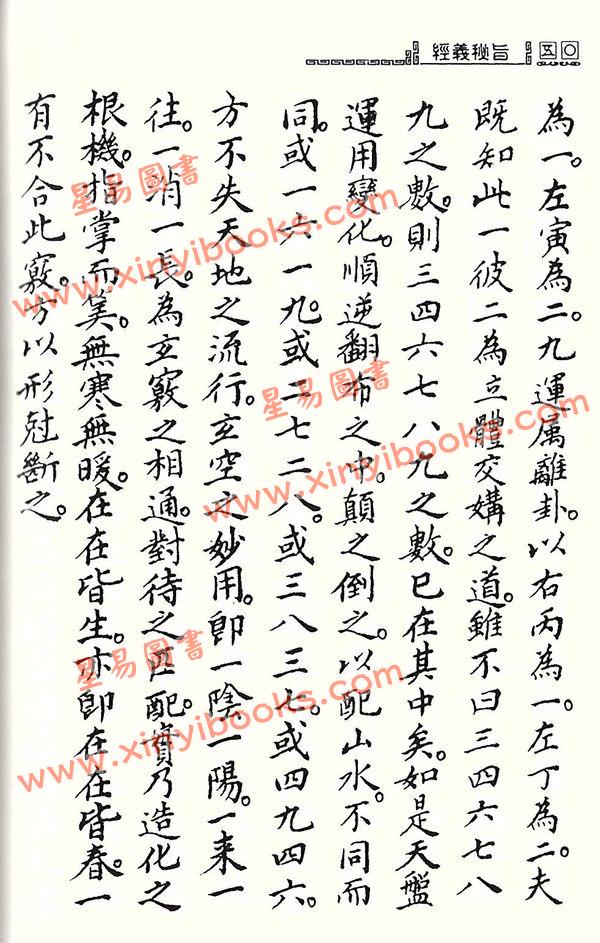 經義秘旨 五〇
為一。左寅為二。九運属離卦。以右丙為一。左丁為二。夫
既知此一彼二為立體交媾之道。雖不曰三四六七八
九之數。則三四六七八九之數。已在其中矣。如是天盤
運用變化。順逆翻布之中。顛之倒之。以配山水。不同而
同。或一六一九。或二七二八。或三八三七。或四九四六。
方不失天地之流行。玄空之妙用。即一陰一陽。一来一
往。一消一長。為玄竅之相通。對待之匹配。實乃造化之
根機。指掌而筭。無寒無暖。在在皆生。亦即在在皆春。一
有不合此竅。方以形尅斷之。
星易圖書
www.xinyibooks.com
星易圖書
www.xinyibooks.com
星易圖書
www.xinyibooks.com
星易圖書
www.xinyibooks.com